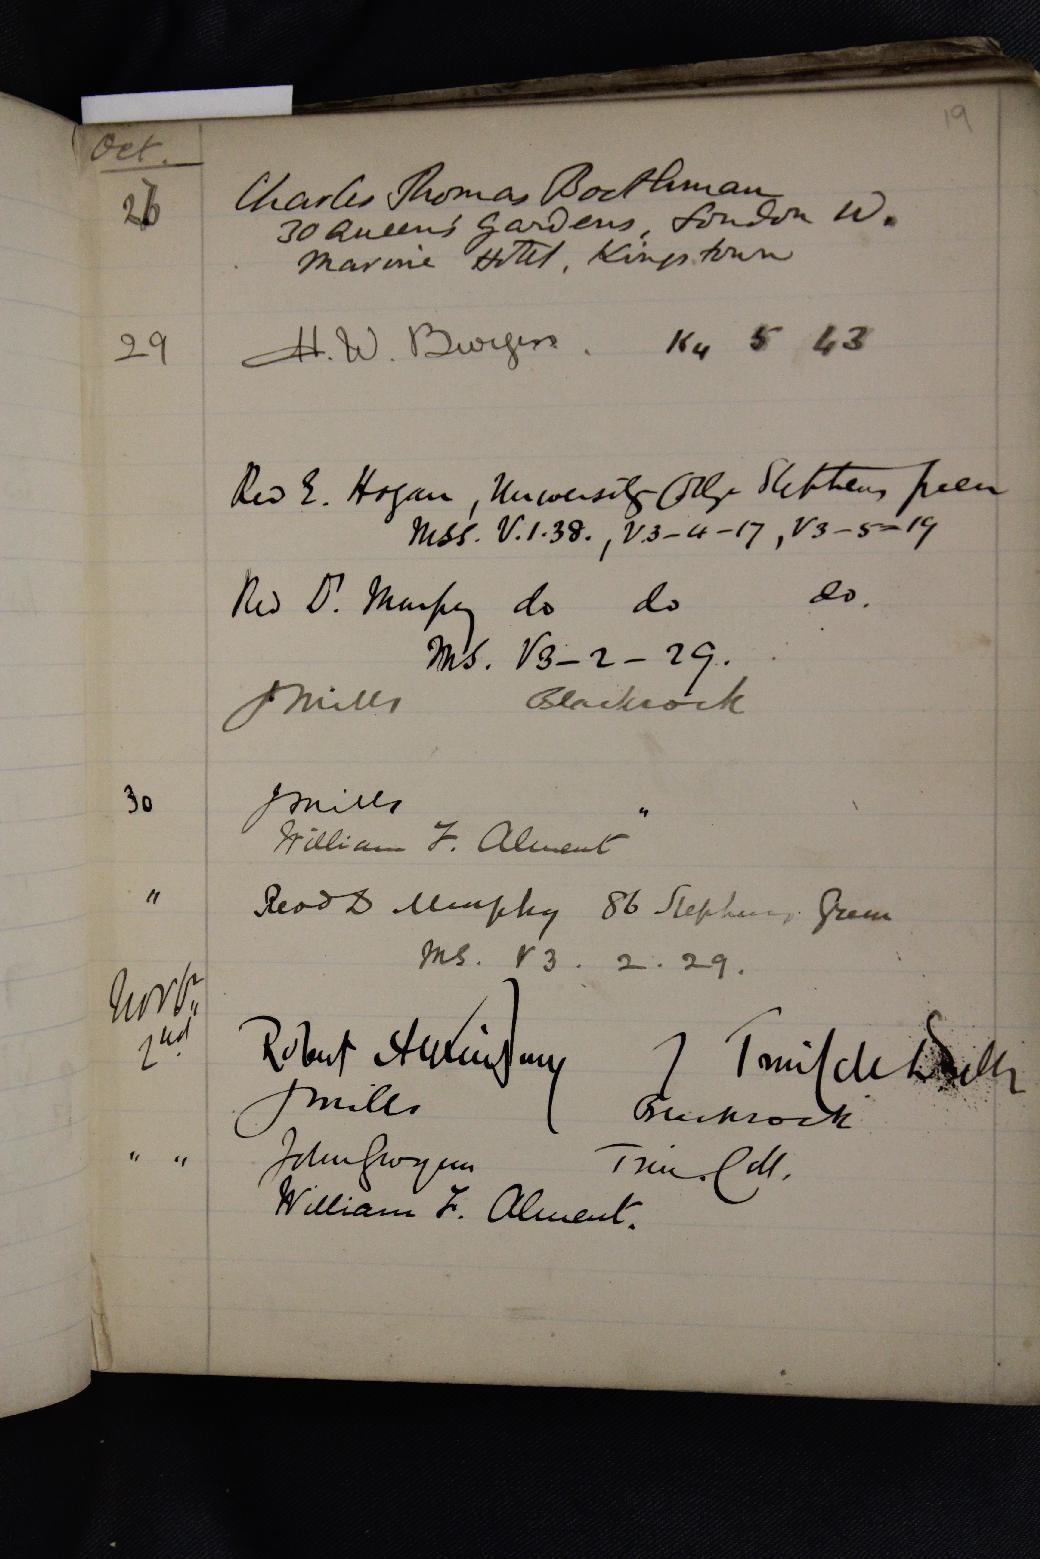 19
Oct.
26 Charles Thomas Boothman
30 Queen's Gardens, London W.
Marine Hotel, Kingstown
29 H. W. Burgess. K4 5 43
Rev E. Hogan, University College Stephens Green
MSS. V.1.38., V3-4-17, V3-5-19
Rev D. Murphy do do do.
MS. V3-2-29.
J Mills Blackrock
30 J Mills "
William F. Alment
" Revd D Murphy 86 Stephens Green
MS. V3. 2. 29.
Novbr
2nd Robert
J Mills Blackrock
" " John Gwynn Trin. Coll.
William F. Alment.